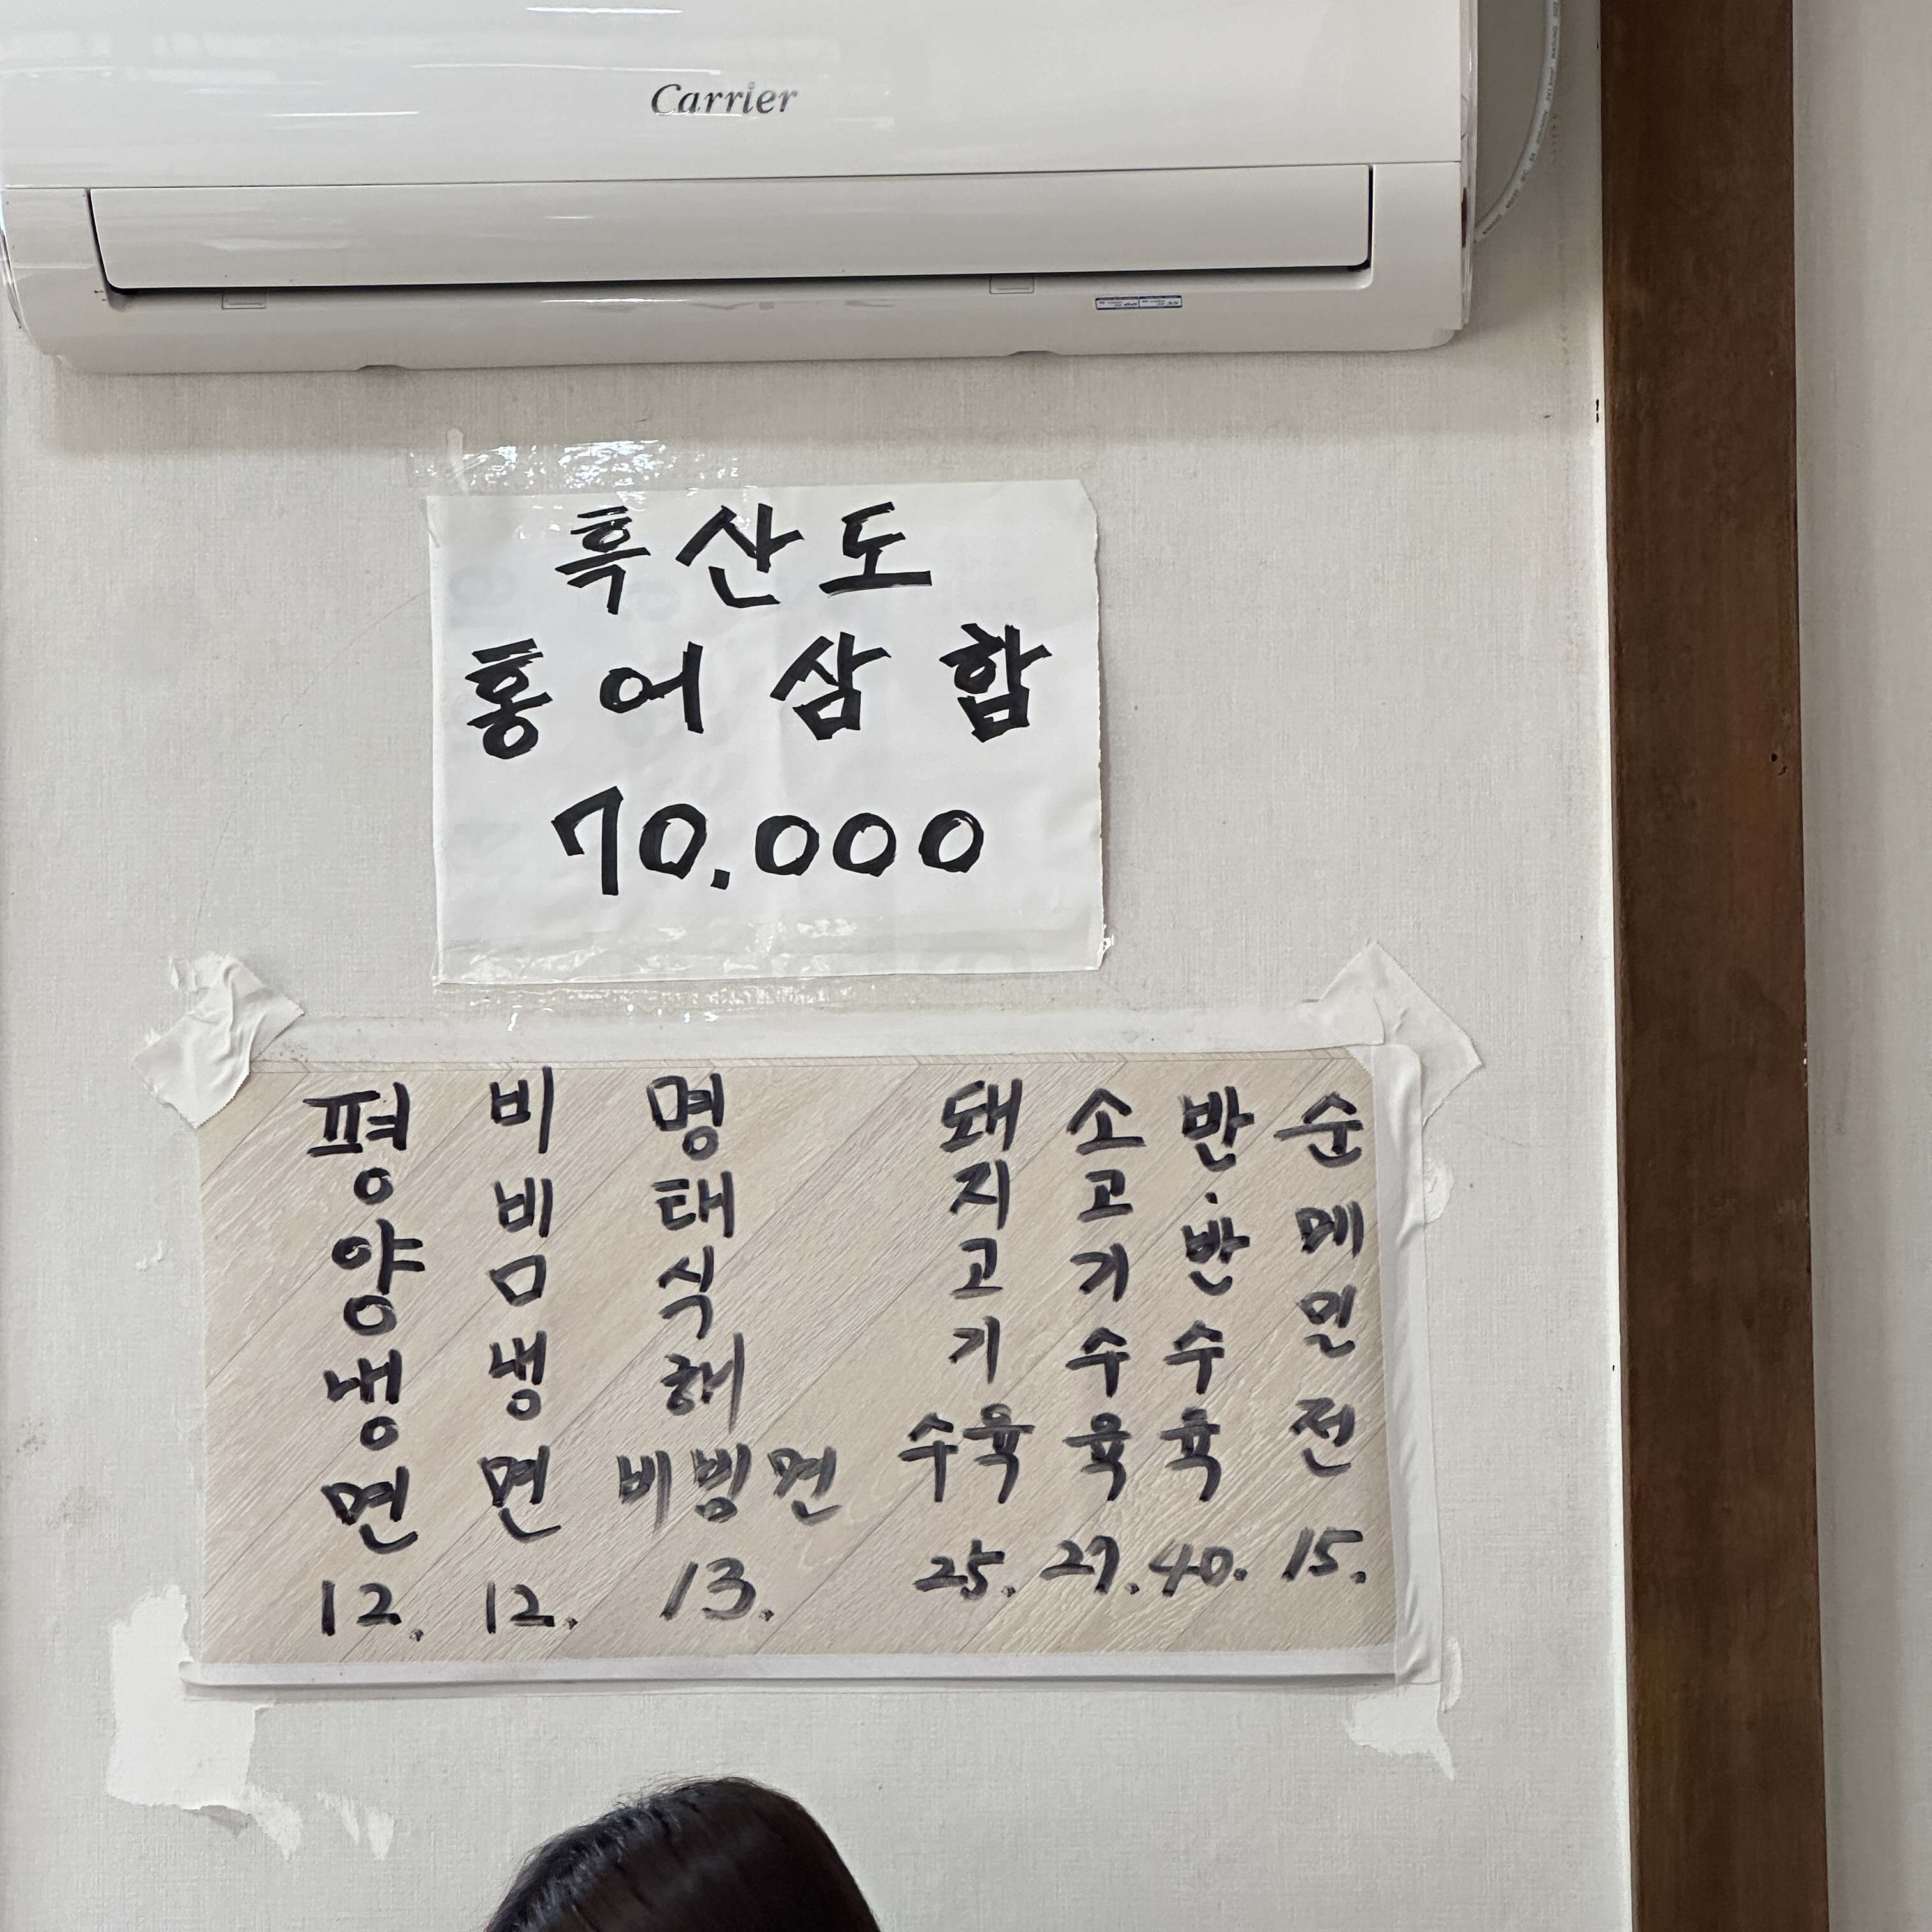 Carrier
흑산도
홍어삼합
70.000
평양냉면 12.
비빔냉면 12.
명태식해 비빙면 13.
돼지고기 수육 25.
소고기수육 27.
반·반수육 40.
순메밀전 15.